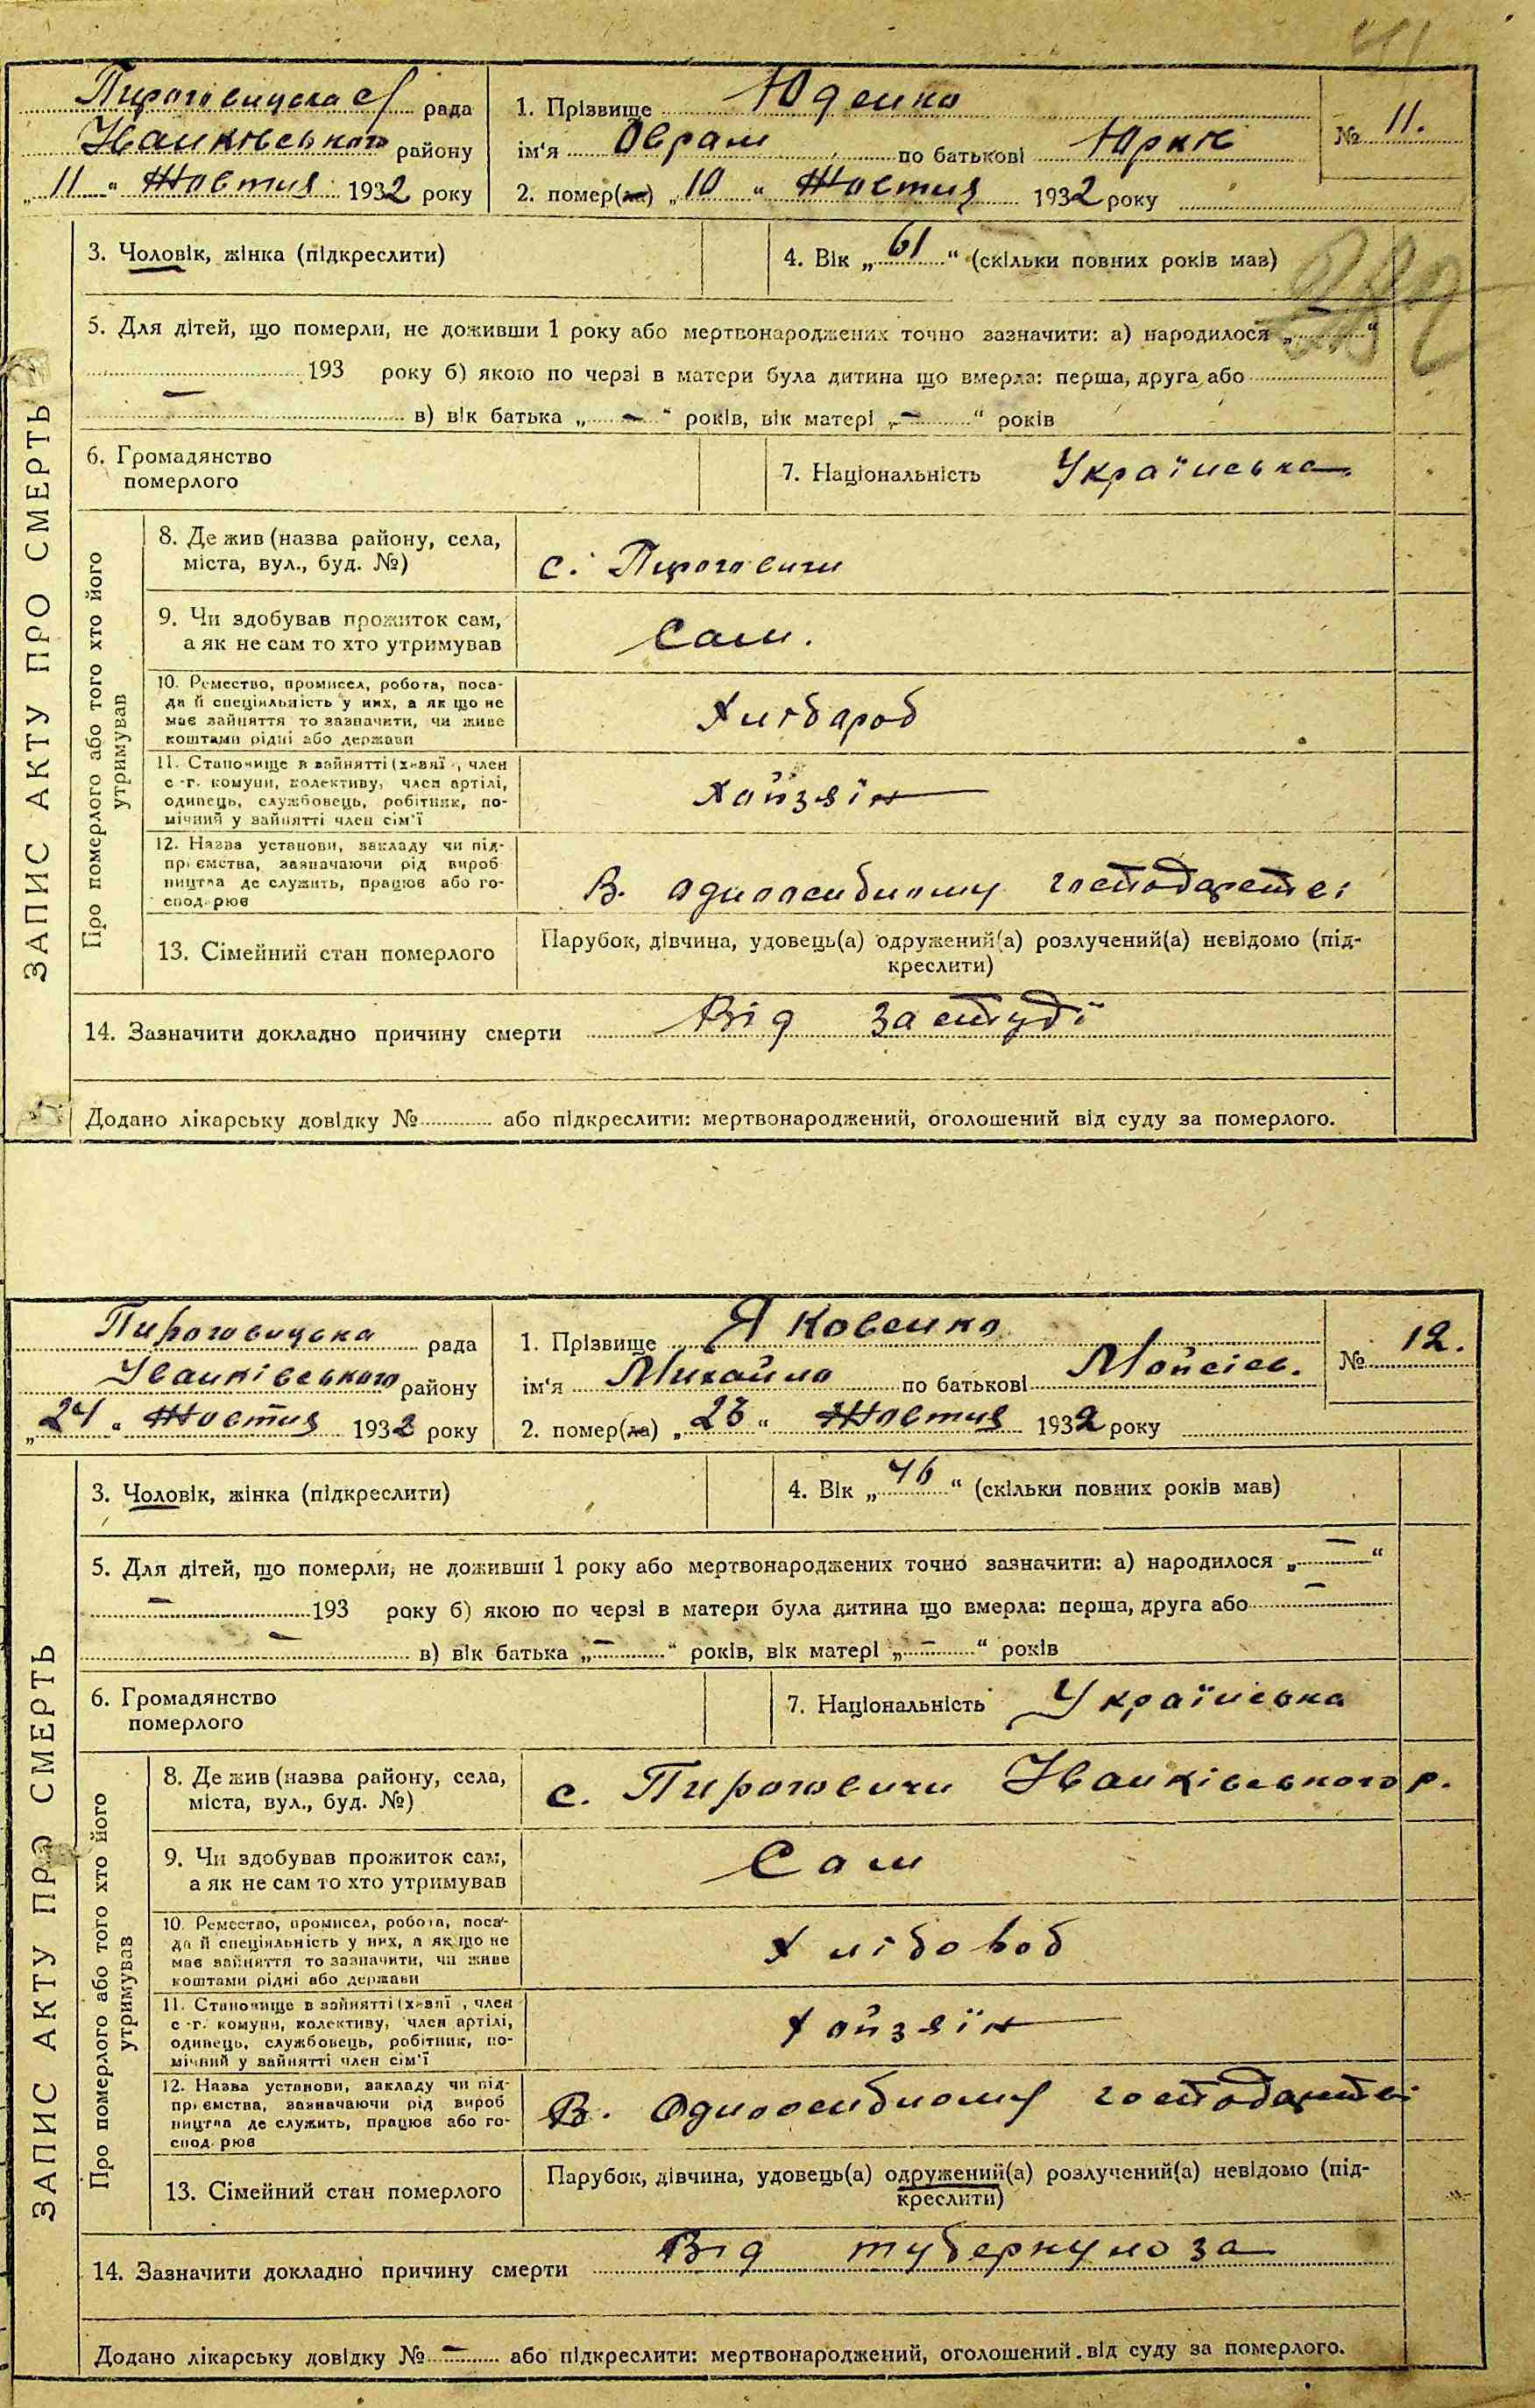 41
Пироговицька с/ рада
Иванківського району
„ 11 “ Жовтня 1932 року
1. Прізвище Юденко
ім'я Оврам по батькові Юрків
№ 11.
2. помер(ла) „ 10 “ Жовтня 1932 року
3. Чоловік, жінка (підкреслити)
4. Вік „ 61 “ (скільки повних років мав)
5. Для дітей, що померли, не доживши 1 року або мертвонароджених точно зазначити: а) народилося „ — “
193 року б) якою по черзі в матери була дитина що вмерла: перша, друга або
— в) вік батька „ — “ років, вік матері „ — “ років
6. Громадянство
померлого
7. Національність Українська
ЗАПИС АКТУ ПРО СМЕРТЬ
Про померлого або того хто його
утримував
8. Де жив (назва району, села,
міста, вул., буд. №)
с. Пироговичи
9. Чи здобував прожиток сам,
а як не сам то хто утримував
Сам.
10. Ремество, промисел, робота, поса-
да й спеціяльність у них, а як що не
має зайняття то зазначити, чи живе
коштами рідні або держави
Хлібароб
11. Становище в зайнятті (х-зяї, член
с.-г. комуни, колективу, член артілі,
одинець, службовець, робітник, по-
мічний у зайнятті член сім'ї
Хайзяїн
12. Назва установи, закладу чи під-
приємства, зазначаючи рід вироб
ництва де служить, працює або го-
спод рює
В. одноосибному господарстві
13. Сімейний стан померлого
Парубок, дівчина, удовець(а) одружений(а) розлучений(а) невідомо (під-
креслити)
14. Зазначити докладно причину смерти Від застуді
Додано лікарську довідку № або підкреслити: мертвонароджений, оголошений від суду за померлого.
Пироговицька рада
Иванківського району
„ 24 “ Жовтня 1932 року
1. Прізвище Яковенко
ім'я Михайло по батькові Мойсієв.
№ 12.
2. помер(ла) „ 23 “ Жовтня 1932 року
3. Чоловік, жінка (підкреслити)
4. Вік „ 46 “ (скільки повних років мав)
5. Для дітей, що померли, не доживши 1 року або мертвонароджених точно зазначити: а) народилося „ — “
— 193 року б) якою по черзі в матери була дитина що вмерла: перша, друга або —
— в) вік батька „ — “ років, вік матері „ — “ років
6. Громадянство
померлого
7. Національність Українська
ЗАПИС АКТУ ПРО СМЕРТЬ
Про померлого або того хто його
утримував
8. Де жив (назва району, села,
міста, вул., буд. №)
с. Пироговичи Иванківського р.
9. Чи здобував прожиток сам,
а як не сам то хто утримував
Сам
10. Ремество, промисел, робота, поса-
да й спеціяльність у них, а як що не
має зайняття то зазначити, чи живе
коштами рідні або держави
Хлібороб
11. Становище в зайнятті (х-зяї, член
с.-г. комуни, колективу, член артілі,
одинець, службовець, робітник, по-
мічний у зайнятті член сім'ї
Хайзяїн
12. Назва установи, закладу чи під-
приємства, зазначаючи рід вироб
ництва де служить, працює або го-
спод рює
В. Одноосибному господарстві
13. Сімейний стан померлого
Парубок, дівчина, удовець(а) одружений(а) розлучений(а) невідомо (під-
креслити)
14. Зазначити докладно причину смерти Від туберкулоза
Додано лікарську довідку № — або підкреслити: мертвонароджений, оголошений від суду за померлого.